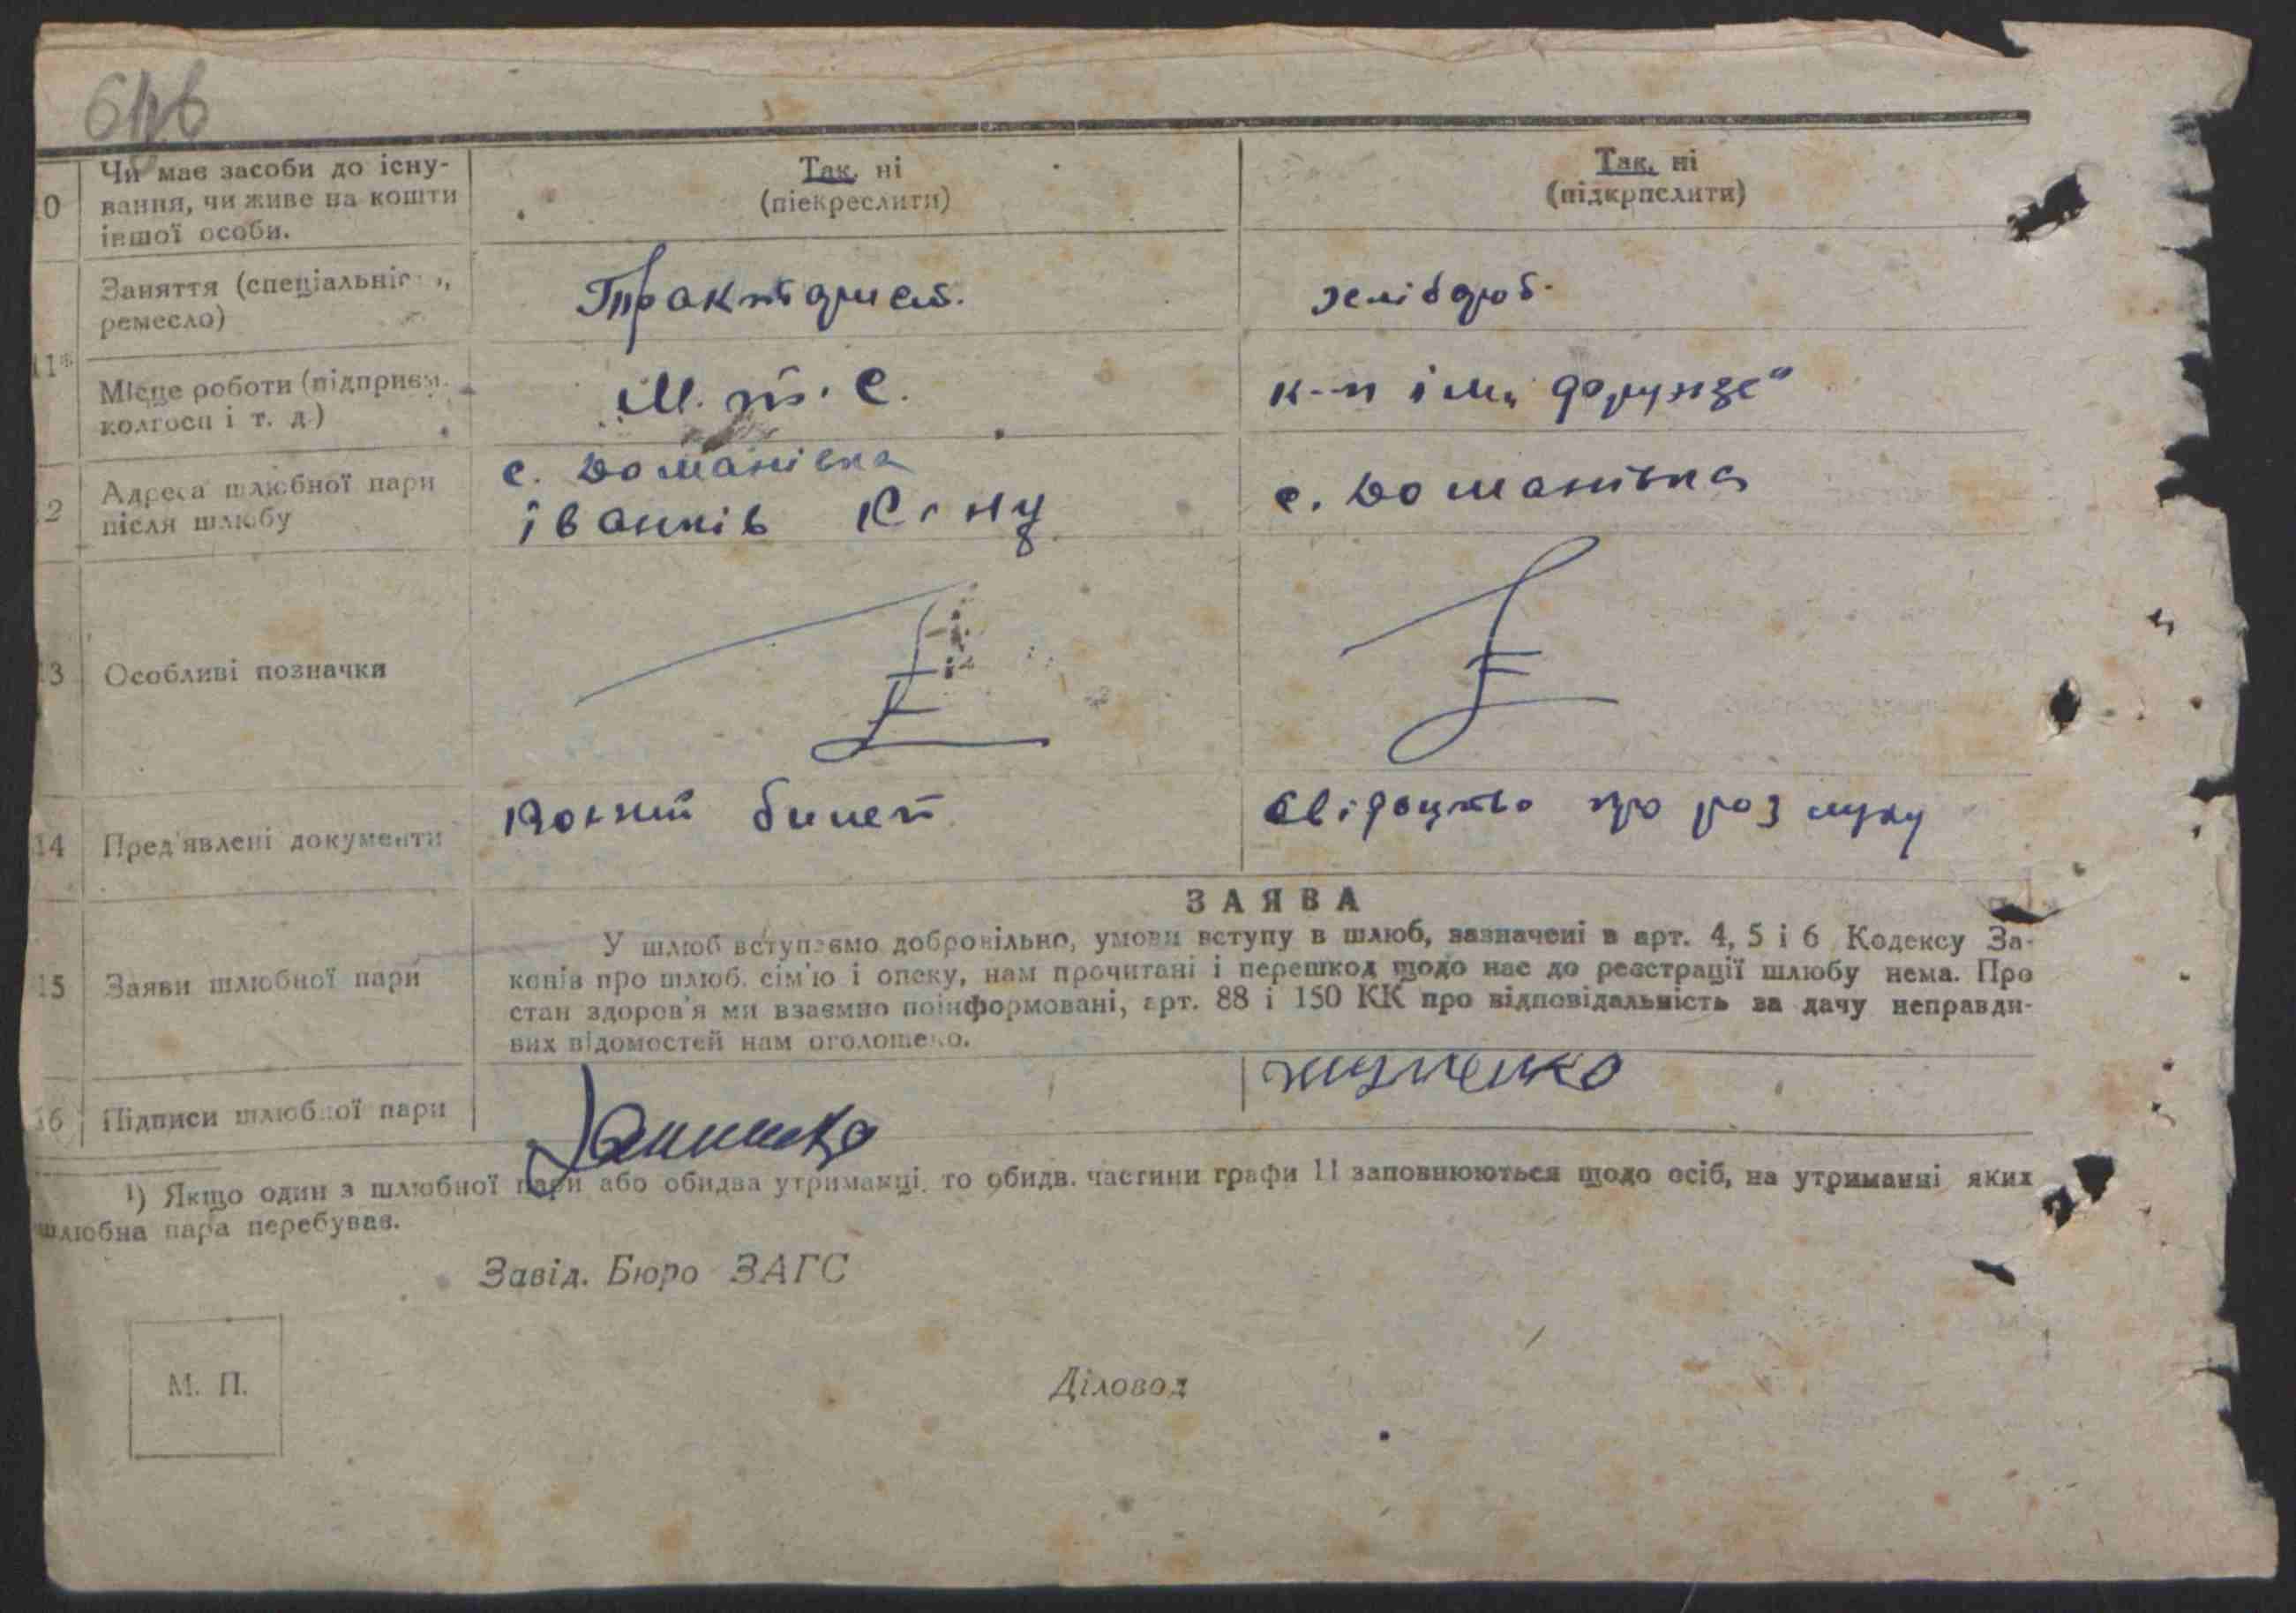 0
Чи має засоби до існу-
вання, чи живе на кошти
іншої особи.
Так, ні
(піекреслити)
Так, ні
(підкрпслити)
11*
Заняття (спеціальніс  ,
ремесло)
Тракторист.
хлібороб.
Місце роботи (підприєм.
колгосп і т. д.)
М.т.с.
к-п
2
Адреса шлюбної пари
після шлюбу
с. Доманівка
Іванків
с. Доманівка
13
Особливі позначки
14
Пред'явлені документи
Воєнний билет
свідоцтво про розлуку
ЗАЯВА
15
Заяви шлюбної пари
У шлюб вступаємо добровільно, умови вступу в шлюб, зазначені в арт. 4, 5 і 6 Кодексу За-
конів про шлюб. сім'ю і опеку, нам прочитані і перешкод щодо нас до реєстрації шлюбу нема. Про
стан здоров'я ми взаємно поінформовані, арт. 88 і 150 КК про відповідальність за дачу неправди-
вих відомостей нам оголошено.
16
Підписи шлюбної пари
¹) Якщо один з шлюбної пари або обидва утриманці, то обидв. частини графи 11 заповнюються щодо осіб, на утриманні яких
шлюбна пара перебуває.
Завід. Бюро ЗАГС
М. П.
Діловод